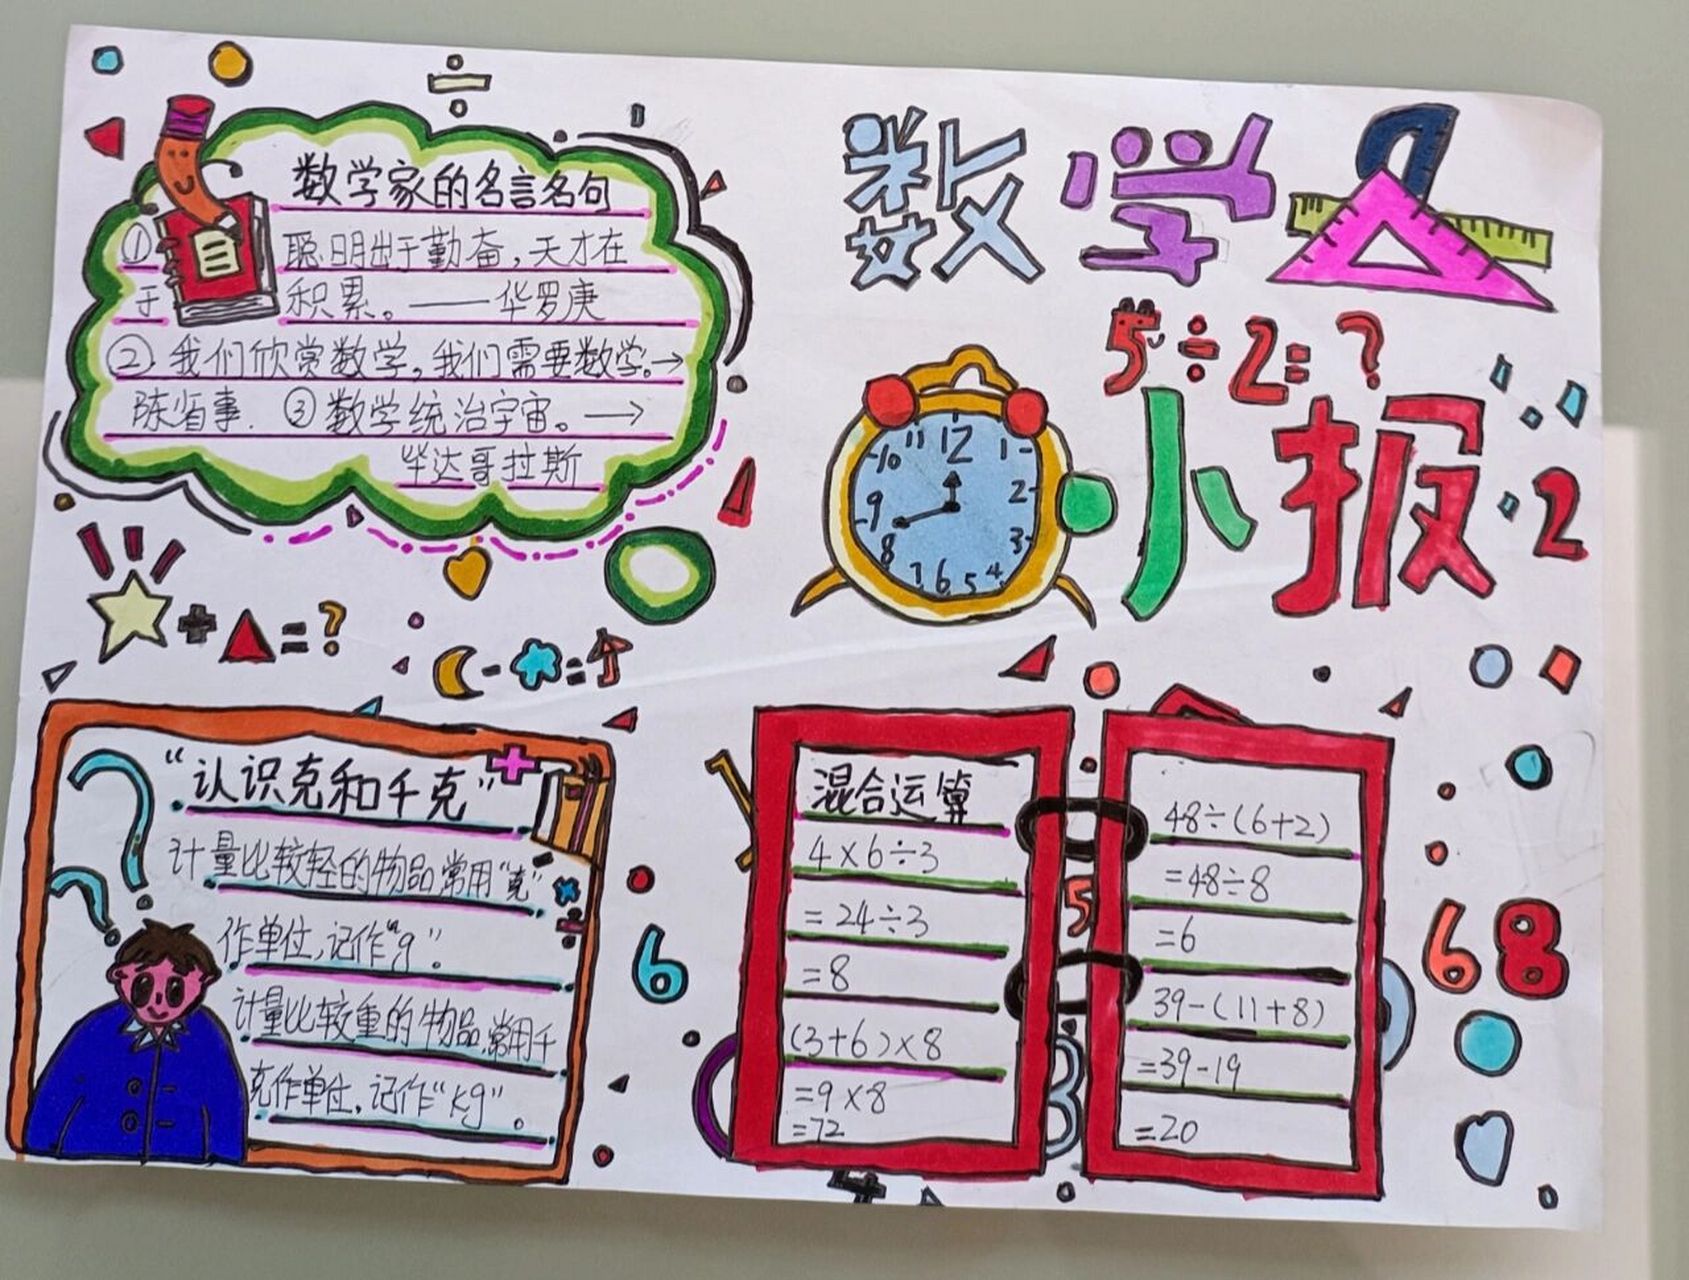 数学
5÷2=?
小报
2
12
1
2
3
4
5
6
7
8
9
10
11
数学家的名言名句
① 聪明出于勤奋,天才在
于 积累。——华罗庚
②我们欣赏数学,我们需要数学。→
陈省事. ③数学统治宇宙。→
毕达哥拉斯
+ = ?
- = ↑
“认识克和千克”
计量比较轻的物品常用“克”
作单位,记作“g”.
计量比较重的物品,常用千
克作单位,记作“kg”。
6
混合运算
4×6÷3
=24÷3
=8
(3+6)×8
=9×8
=72
5
3
48÷(6+2)
=48÷8
=6
39-(11+8)
=39-19
=20
68